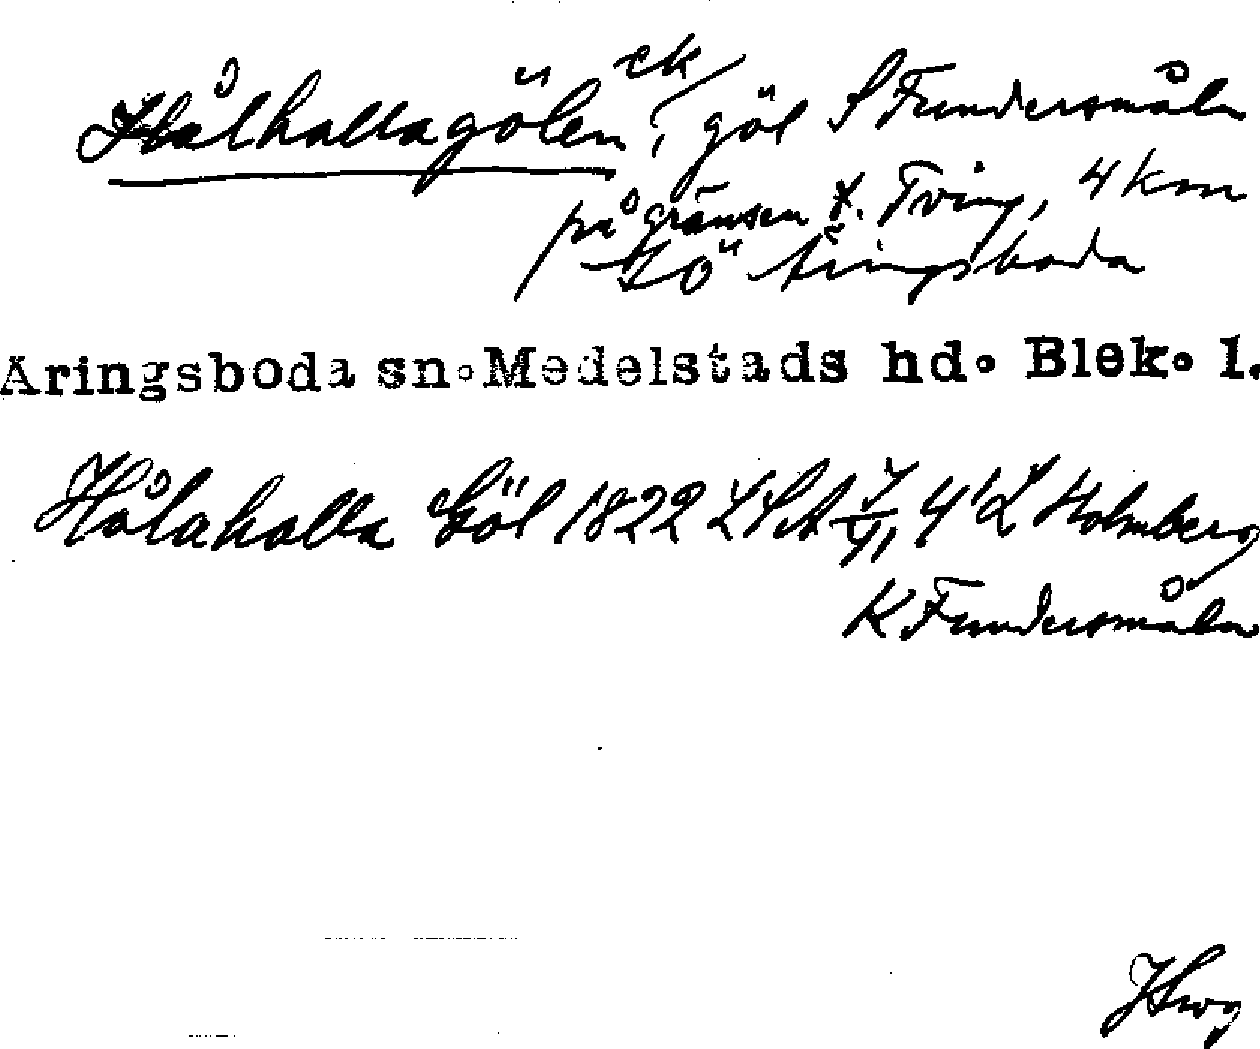 Hålhallagölen, ek göl S Fundersmåla
på gränsen t. Tving, 4 km
SÖ Åringsboda
Åringsboda sn. Medelstads hd. Blek. l.
Hålahalla Göl 1822 LSA 4' L Holmberg
K Fundersmåla